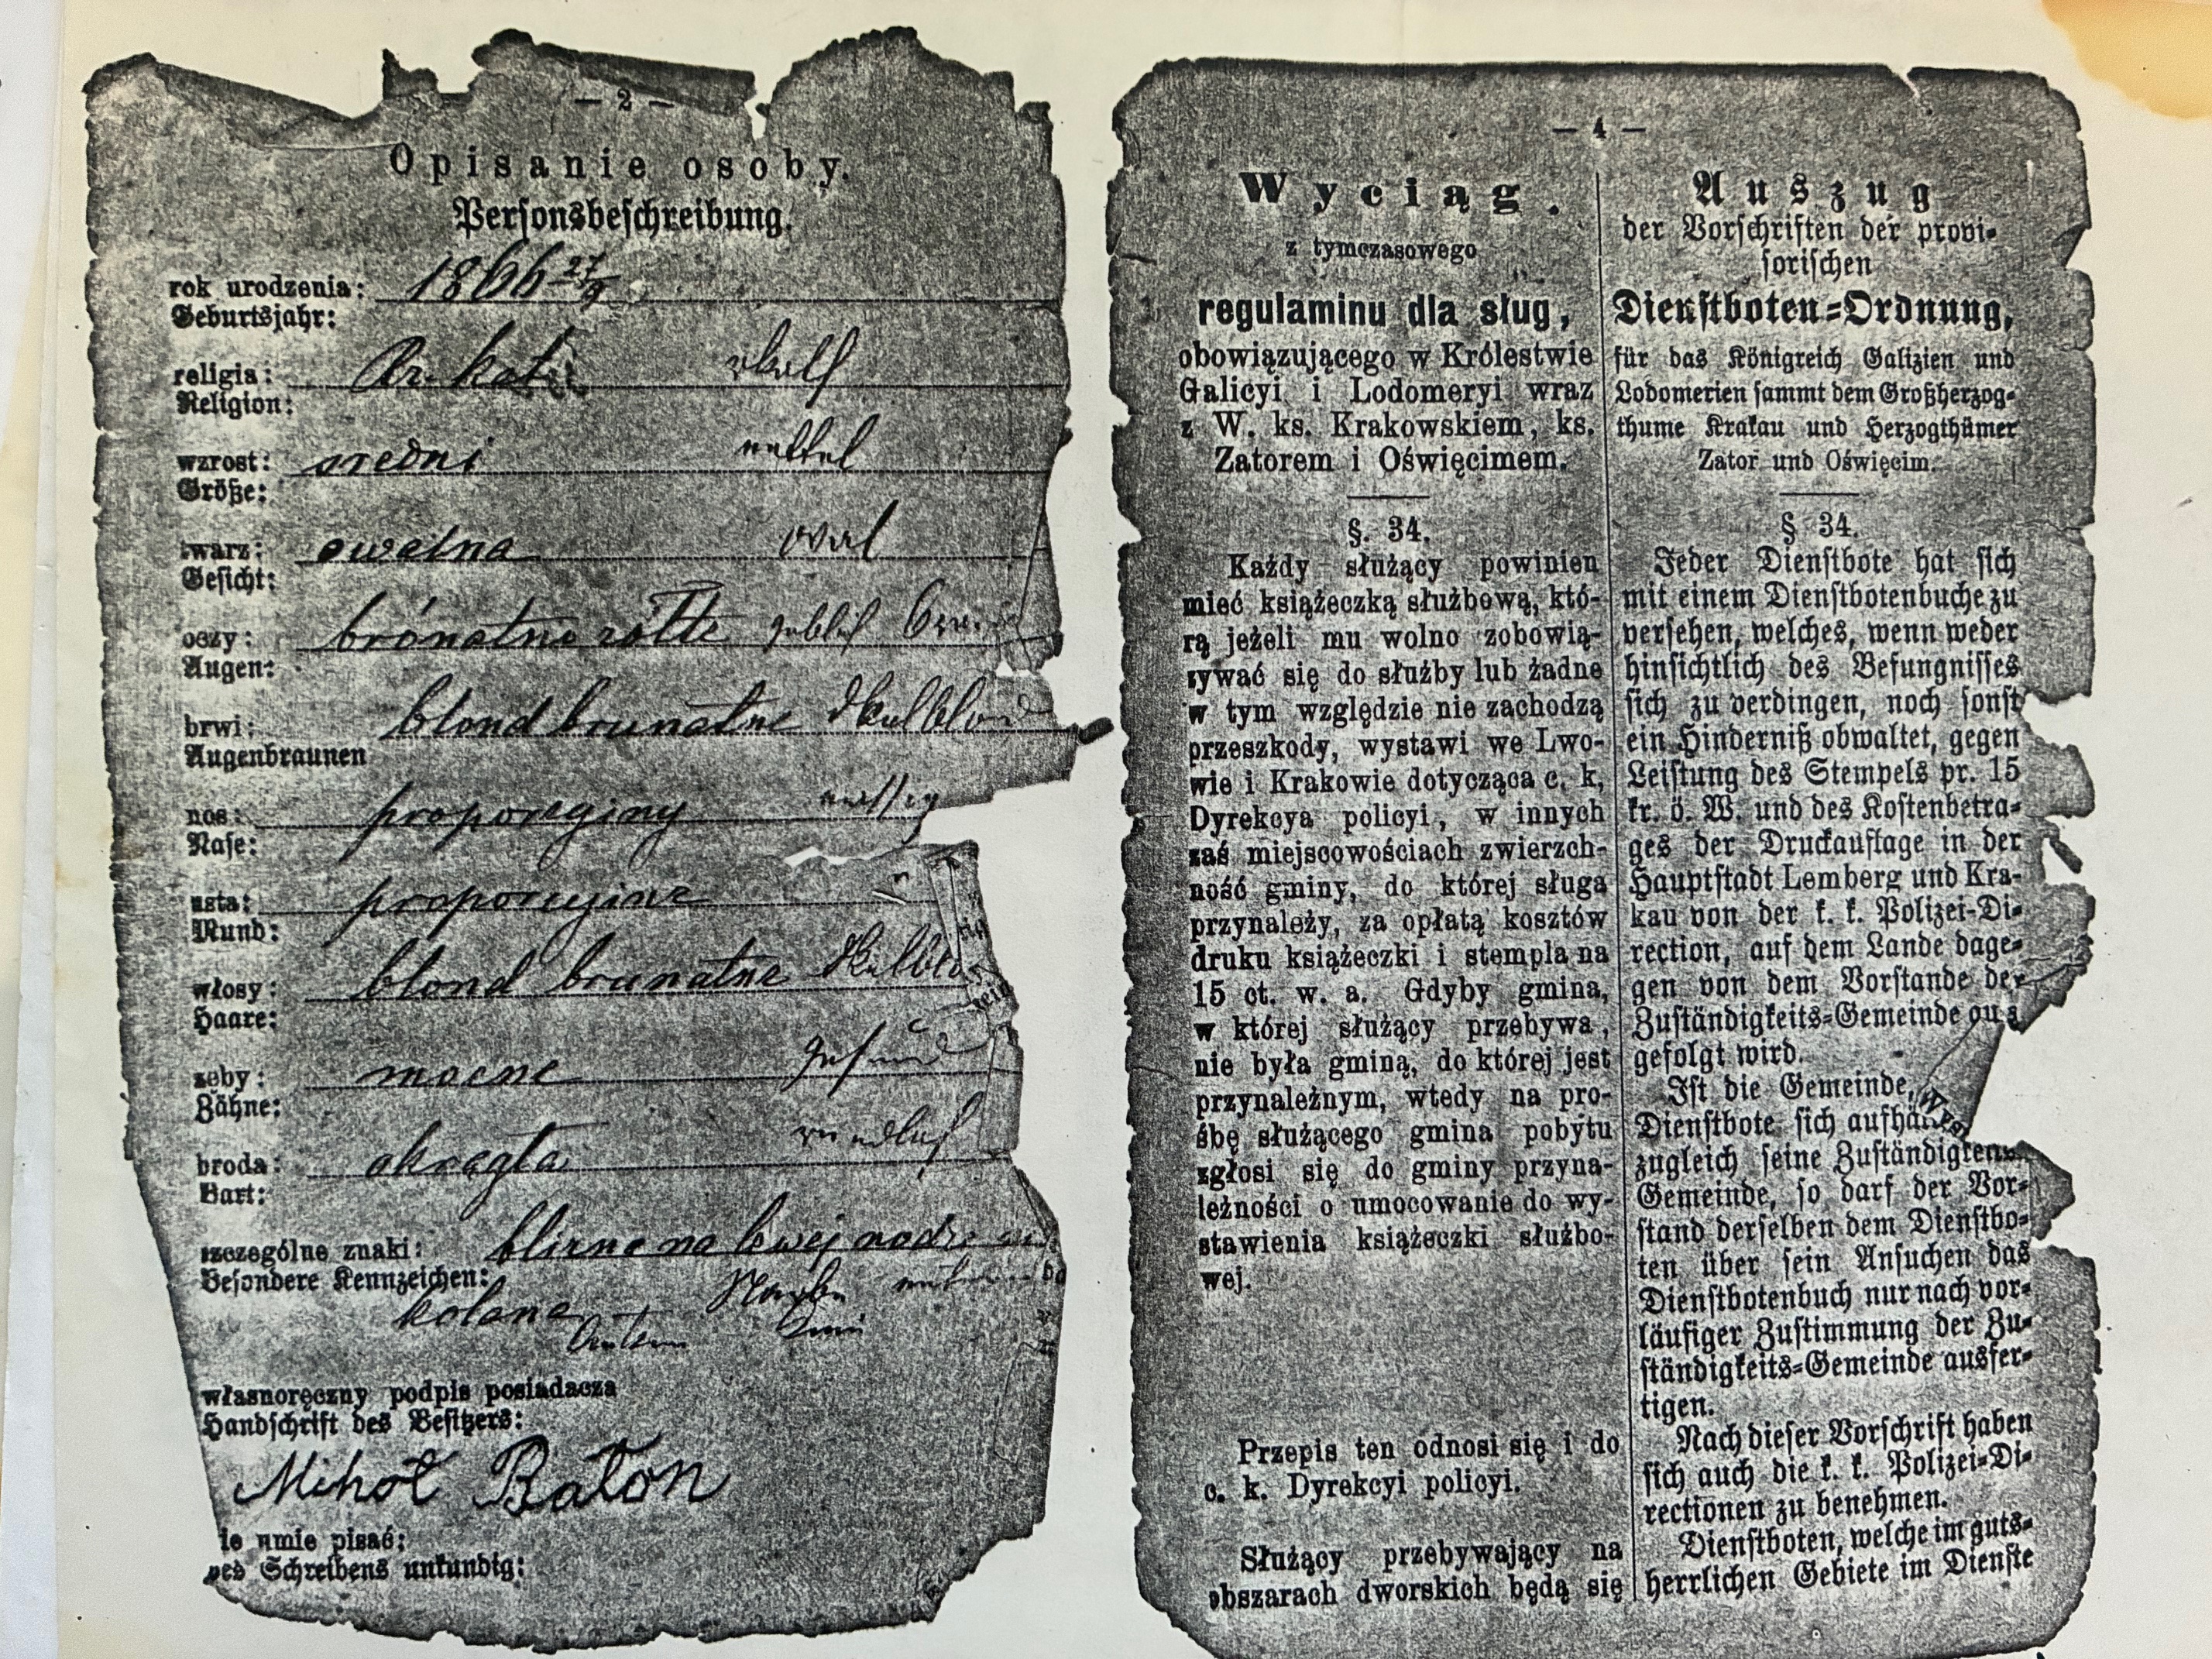 — 2 —
Opisanie osoby.
Personsbeschreibung.
rok urodzenia: 1866 27/9
Geburtsjahr:
religia: kat
Religion:
wzrost: sredni mittel
Größe:
twarz: owalna oval
Gesicht:
oczy: brónatno
Augen:
brwi: blond brunatne
Augenbraunen
nos: proporcyjny
Nase:
usta: proporcyjne
Mund:
włosy: blond brunatne
Haare:
zęby: mocne gesund
Zähne:
broda: okrągła rundlich
Bart:
szczególne znaki: na lewej
Besondere Kennzeichen:
kolane
własnoręczny podpis posiadacza
Handschrift des Besitzers:
Mihoł Baton
ie umie pisać:
des Schreibens unkundig:
— 4 —
Wyciąg.
z tymczasowego
regulaminu dla sług,
obowiązującego w Królestwie
Galicyi i Lodomeryi wraz
z W. ks. Krakowskiem, ks.
Zatorem i Oświęcimem.
§. 34.
Każdy służący powinien
mieć książeczką służbową, któ-
rą jeżeli mu wolno zobowią-
zywać się do służby lub żadne
w tym względzie nie zachodzą
przeszkody, wystawi we Lwo-
wie i Krakowie dotycząca c. k,
Dyrekcya policyi, w innych
zaś miejscowościach zwierzch-
ność gminy, do której sługa
przynależy, za opłatą kosztów
druku książeczki i stempla na
15 ct. w. a. Gdyby gmina,
w której służący przebywa,
nie była gminą, do której jest
przynależnym, wtedy na pro-
śbę służącego gmina pobytu
zgłosi się do gminy przyna-
leżności o umocowanie do wy-
stawienia książeczki służbo-
wej.
Przepis ten odnosi się i do
c. k. Dyrekcyi policyi.
Służący przebywający na
obszarach dworskich będą się
Auszug
der Vorschriften der provi-
sorischen
Dienstboten-Ordnung,
für das Königreich Galizien und
Lodomerien sammt dem Großherzog-
thume Krakau und Herzogthümer
Zator und Oświęcim.
§ 34.
Jeder Dienstbote hat sich
mit einem Dienstbotenbuche zu
versehen, welches, wenn weder
hinsichtlich des Befungnisses
sich zu verdingen, noch sonst
ein Hinderniß obwaltet, gegen
Leistung des Stempels pr. 15
kr. ö. W. und des Kostenbetra-
ges der Druckauflage in der
Hauptstadt Lemberg und Kra-
kau von der k. k. Polizei-Di-
rection, auf dem Lande dage-
gen von dem Vorstande der
Zuständigkeits-Gemeinde
gefolgt wird.
Ist die Gemeinde,
Dienstbote sich
zugleich seine
Gemeinde, so darf der Vor-
stand derselben dem Dienstbo-
ten über sein Ansuchen das
Dienstbotenbuch nur nach vor-
läufiger Zustimmung der Zu-
ständigkeits-Gemeinde ausfer-
tigen.
Nach dieser Vorschrift haben
sich auch die k. k. Polizei-Di-
rectionen zu benehmen.
Dienstboten, welche im guts-
herrlichen Gebiete im Dienste